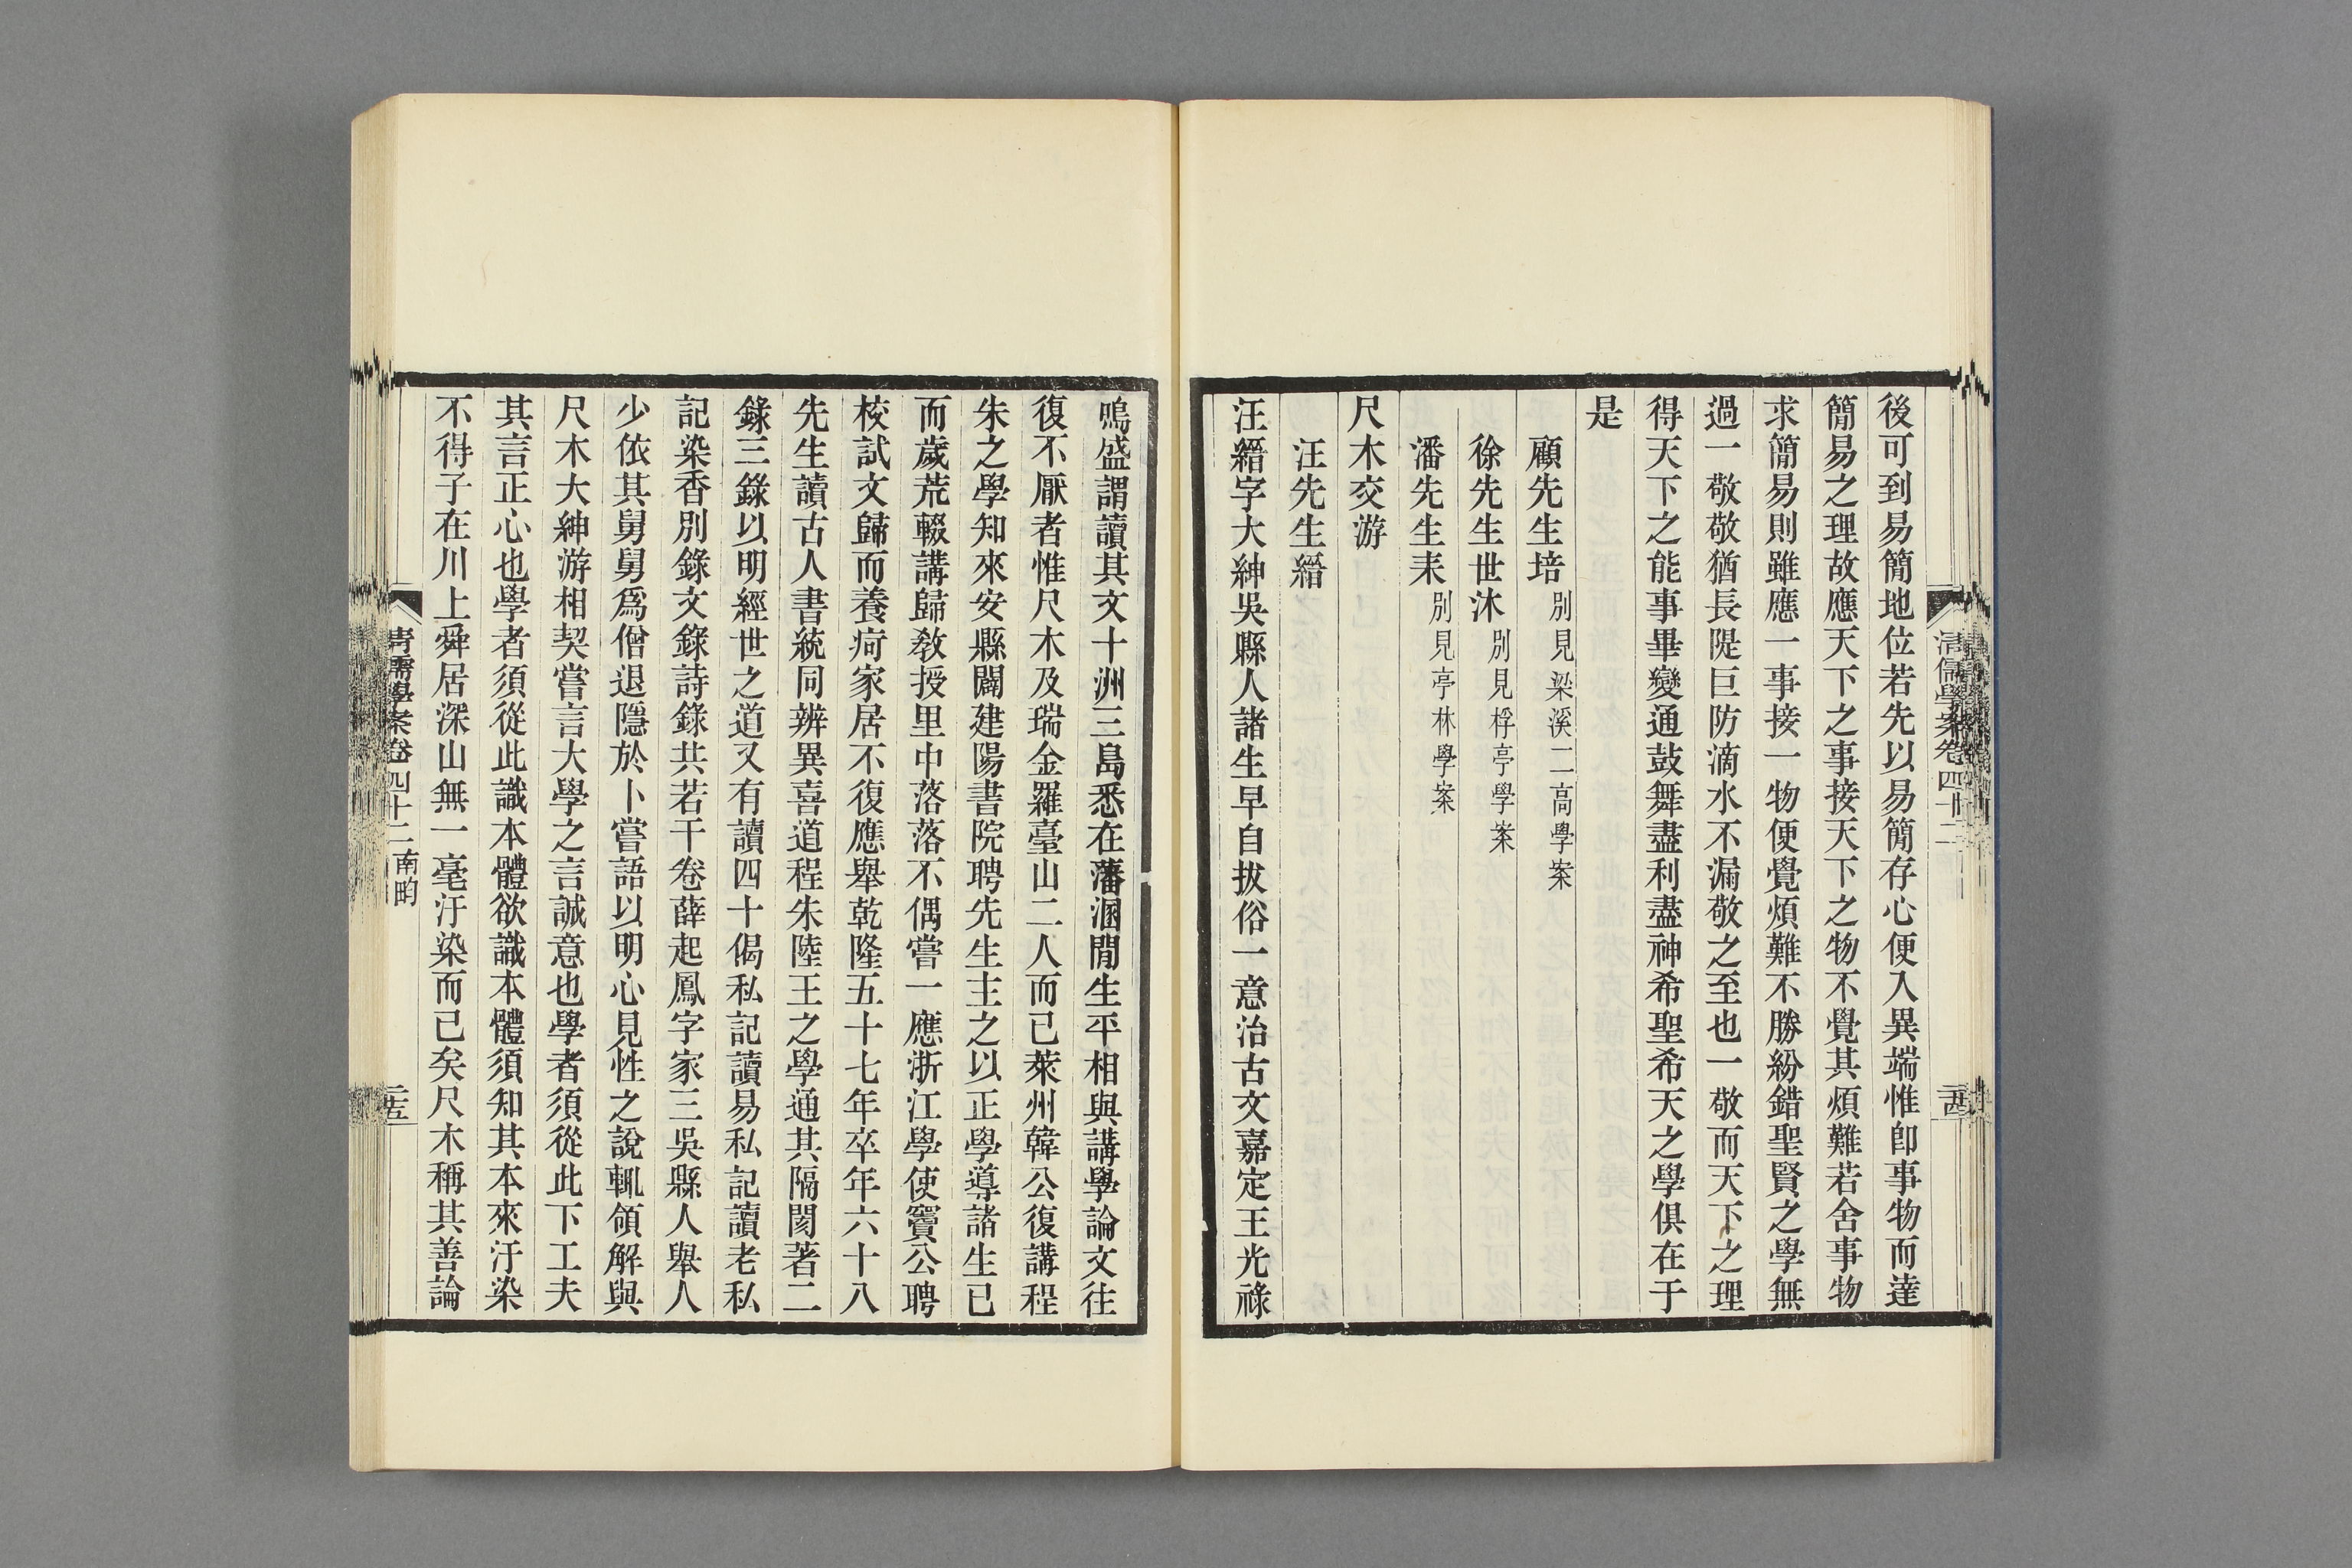 後可到易簡地位若先以易簡存心便入異端惟卽事物而達
簡易之理故應天下之事接天下之物不覺其煩難若舍事物
求簡易則雖應一事接一物便覺煩難不勝紛錯聖賢之學無
過一敬敬猶長隄巨防滴水不漏敬之至也一敬而天下之理
得天下之能事畢變通鼓舞盡利盡神希聖希天之學俱在于
是
顧先生培 別見梁溪二高學案
徐先生世沐 別見桴亭學案
潘先生耒 別見亭林學案
尺木交游
汪先生縉
汪縉字大紳吳縣人諸生早自拔俗一意治古文嘉定王光祿
鳴盛謂讀其文十洲三島悉在藩溷閒生平相與講學論文往
復不厭者惟尺木及瑞金羅臺山二人而已萊州韓公復講程
朱之學知來安縣闢建陽書院聘先生主之以正學導諸生已
而歲荒輟講歸敎授里中落落不偶嘗一應浙江學使竇公聘
校試文歸而養疴家居不復應舉乾隆五十七年卒年六十八
先生讀古人書統同辨異喜道程朱陸王之學通其隔閡著二
錄三錄以明經世之道又有讀四十偈私記讀易私記讀老私
記染香別錄文錄詩錄共若干卷薛起鳳字家三吳縣人舉人
少依其舅舅爲僧退隱於卜嘗語以明心見性之說輒領解與
尺木大紳游相契嘗言大學之言誠意也學者須從此下工夫
其言正心也學者須從此識本體欲識本體須知其本來汙染
不得子在川上舜居深山無一毫汙染而已矣尺木稱其善論
清儒學案卷四十二 南畇
二十五